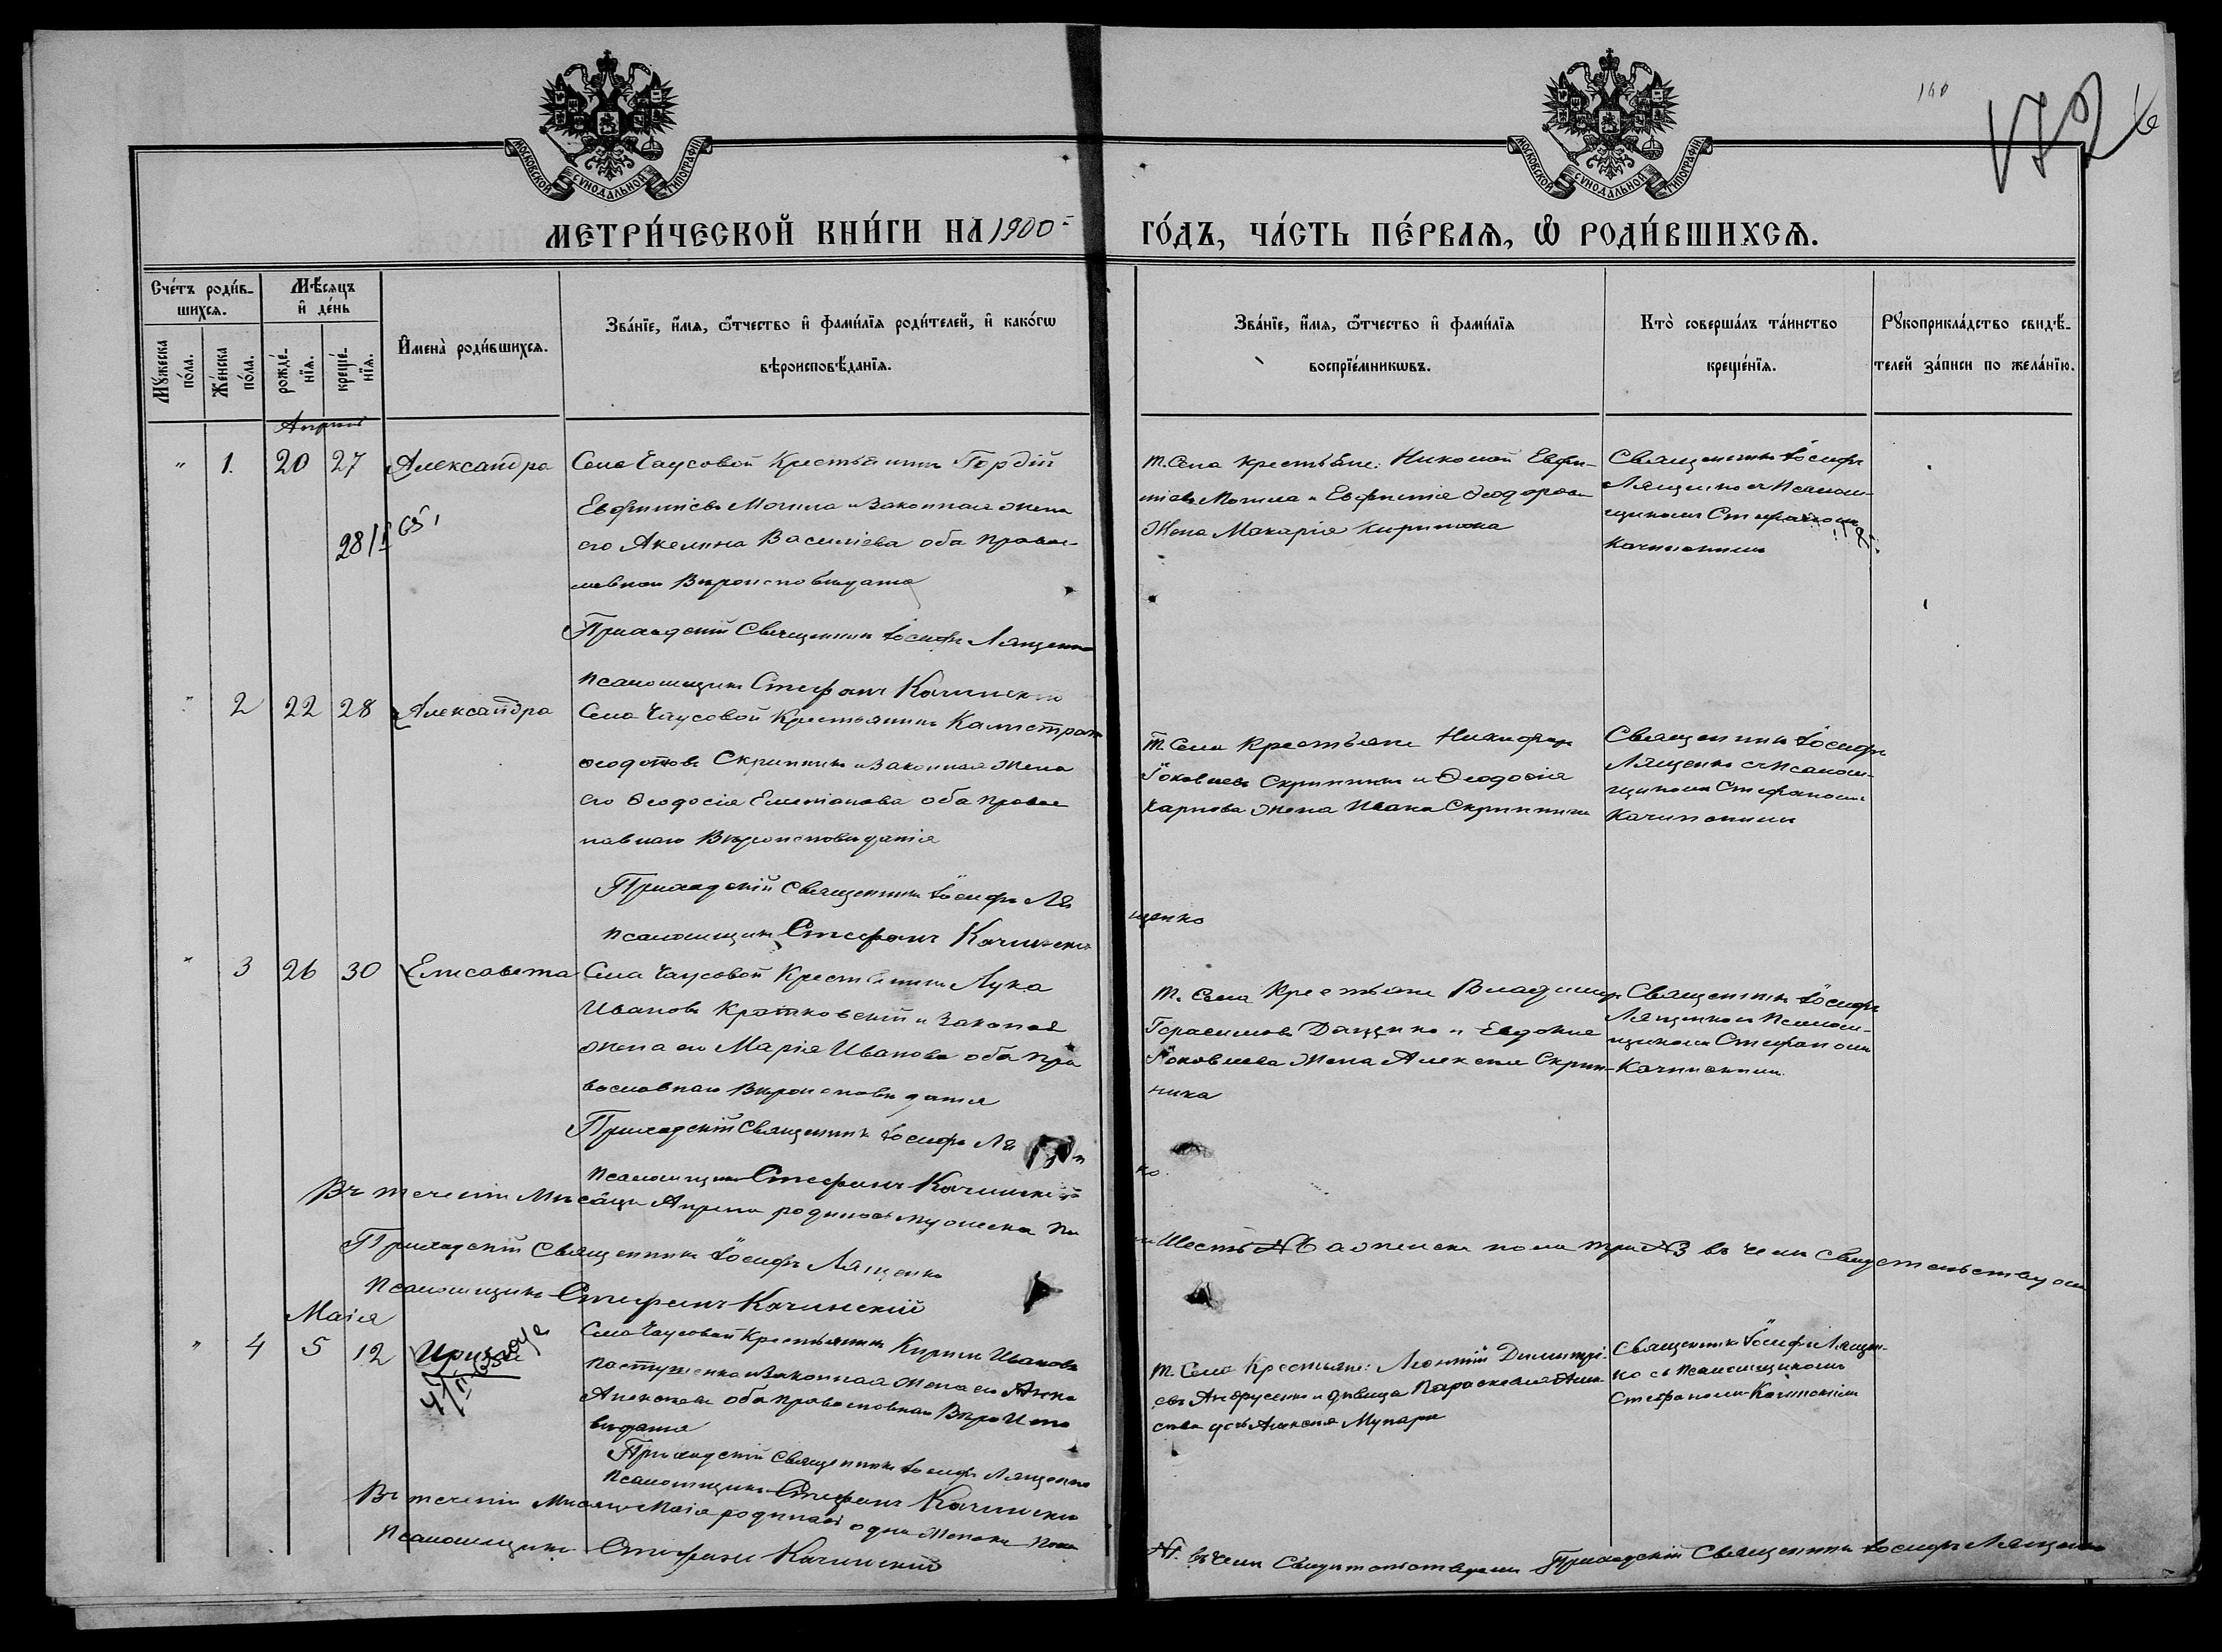 МОСКОВСКОЙ СѴНОДАЛЬНОЙ ТИПОГРАФІИ
МОСКОВСКОЙ СѴНОДАЛЬНОЙ ТИПОГРАФІИ
МЕТРИ́ЧЕСКОЙ КНИ́ГИ НА 1900
ГО́ДЪ, ЧА́СТЬ ПЕ́РВАѦ, Ѽ РОДИ́ВШИХСѦ.
Сче́тъ роди́в-
шихсѧ.
Мѣ́сѧцъ
и҆ де́нь
Мꙋжеска по́ла.
Же́нска по́ла.
рожде́-
нїѧ.
креще́-
нїѧ.
И҆мена̀ роди́вшихсѧ.
Зва́нїе, и҆́мѧ, ѻ҆́тчество и҆ фами́лїѧ роди́телей, и҆ како́гѡ
вѣроисповѣ́данїѧ.
Зва́нїе, и҆́мѧ, ѻ҆́тчество и҆ фами́лїѧ
воспрїе́мникѡвъ.
Кто̀ соверша́лъ та́инство
креще́нїѧ.
Рꙋкоприкла́дство свидѣ́-
телей за́писи по жела́нїю.
Апрель
" 1. 20 27 Александра
28/I 65
Села Чаусовой Крестьянинъ Гордій
Евфиміевъ Могила и Законная жена
его Акелина Василіева оба право-
славнаго Вѣроисповѣданія
Приходскій Священникъ Іосифъ Лященко
Псаломщикъ Стефанъ Качинскій
т. Села крестьяне: Николай Евфи-
міевъ Могила и Евфимія Ѳеодорова
Жена Макарія
Священникъ Іосифъ
Лященко съ Псалом-
щикомъ Стефаномъ
Качинскимъ
" 2 22 28 Александра
Села Чаусовой Крестьянинъ Калистратъ
Ѳеодотовъ Скрипникъ и Законная жена
его Ѳеодосія Емельянова оба право
славнаго Вѣроисповѣданія
Приходскій Священникъ Іосифъ Ля
щенко
Псаломщикъ Стефанъ Качинскій
т. Села Крестьяне Никифоръ
Іаковлевъ Скрипникъ и Ѳеодосія
Карпова жена Ивана Скрипника
Священникъ Іосифъ
Лященко съ Псалом-
щикомъ Стефаномъ
Качинскимъ
" 3 26 30 Елисавета
Села Чаусовой Крестьянинъ Лука
Ивановъ Кратковскій и Законная
жена его Марія Иванова оба пра
вославнаго Вѣроисповѣданія
Приходскій Священникъ Іосифъ Ля
ко.
Псаломщикъ Стефанъ Качинскій
т. Села Крестьяне Владимиръ
Герасимовъ Даценко и Евдокія
Іаковлева жена Алексея Скрип-
ника
Священникъ Іосифъ
Лященко съ Псалом-
щикомъ Стефаномъ
Качинскимъ.
Въ теченіи Мѣсяца Апрѣля родилось мужеска по
ла Шесть №6 а женска пола три №3 въ чемъ Свидетельствуемъ
Приходскій Священникъ Іосифъ Лященко
Псаломщикъ Стефанъ Качинскій
Маія
" 4 5 12
Села Чаусовой Крестьянинъ Кирилъ Ивановъ
Пастушенко и Законная жена его Анна
Алексеева оба православнаго Вѣроиспо
вѣданія
Приходскій Священникъ Іосифъ Лященко
Псаломщикъ Стефанъ Качинскій
т. Села Крестьяне: Леонтій Димитрі-
евъ Андрусенко и дѣвица Параскевія Алек-
Священникъ Іосифъ Лящен-
ко съ Псаломщикомъ
Стефаномъ Качинскимъ
Въ теченіи Мѣсяца Маія родилась одна женска пола
№1. въ чемъ Свидѣтельствуемъ Приходскій Священникъ Іосифъ Лященко
Псаломщикъ Стефанъ Качинскій